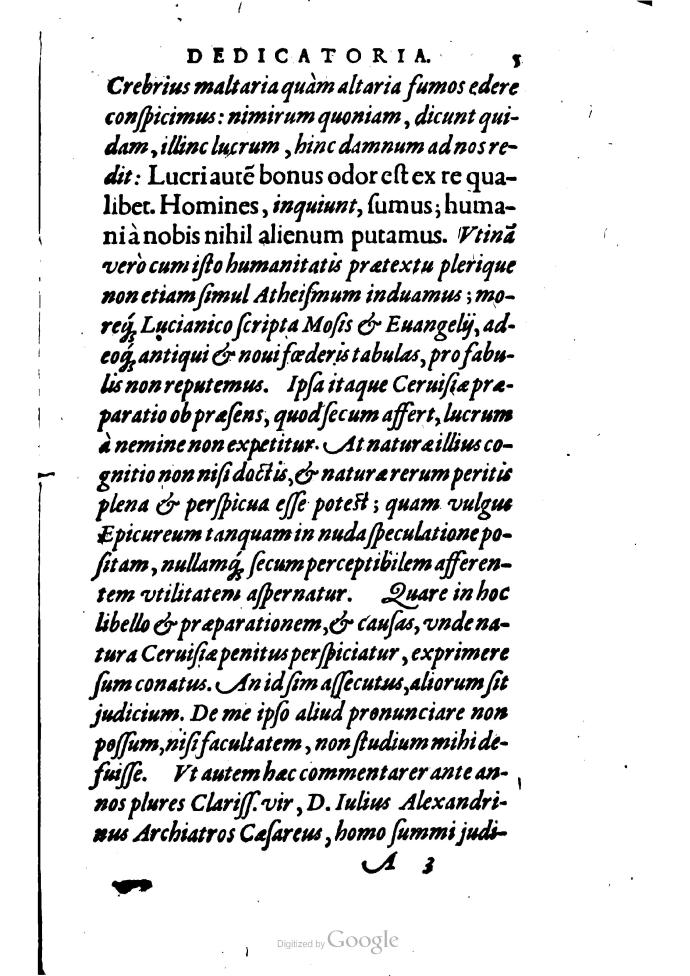 DEDICATORIA. 5
Crebrius maltaria quàm altaria fumos edere
conſpicimus: nimirum quoniam, dicunt qui-
dam, illinc lucrum, hinc damnum ad nos re-
dit: Lucri autẽ bonus odor eſt ex re qua-
libet. Homines, inquiunt, ſumus; huma-
ni à nobis nihil alienum putamus. Vtinã
verò cum iſto humanitatis prætextu plerique
non etiam ſimul Atheiſmum induamus; mo-
req́; Lucianico ſcripta Moſis & Euangelij, ad-
eoq́; antiqui & noui fœderis tabulas, pro fabu-
lis non reputemus. Ipſa itaque Ceruiſiæ præ-
paratio ob præſens, quod ſecum affert, lucrum
à nemine non expetitur. At naturæ illius co-
gnitio non niſi doctis, & naturæ rerum peritis
plena & perſpicua eſſe poteſt; quam vulgus
Epicureum tanquam in nuda ſpeculatione po-
ſitam, nullamq́; ſecum perceptibilem afferen-
tem vtilitatem aſpernatur. Quare in hoc
libello & præparationem, & cauſas, vnde na-
tura Ceruiſiæ penitus perſpiciatur, exprimere
ſum conatus. An id ſim aſſecutus, aliorum ſit
judicium. De me ipſo aliud pronunciare non
poſſum, niſi facultatem, non ſtudium mihi de-
fuiſſe. Vt autem hæc commentarer ante an-
nos plures Clariſſ. vir, D. Iulius Alexandri-
nus Archiatros Cæſareus, homo ſummi judi-
A 3
Digitized by Google